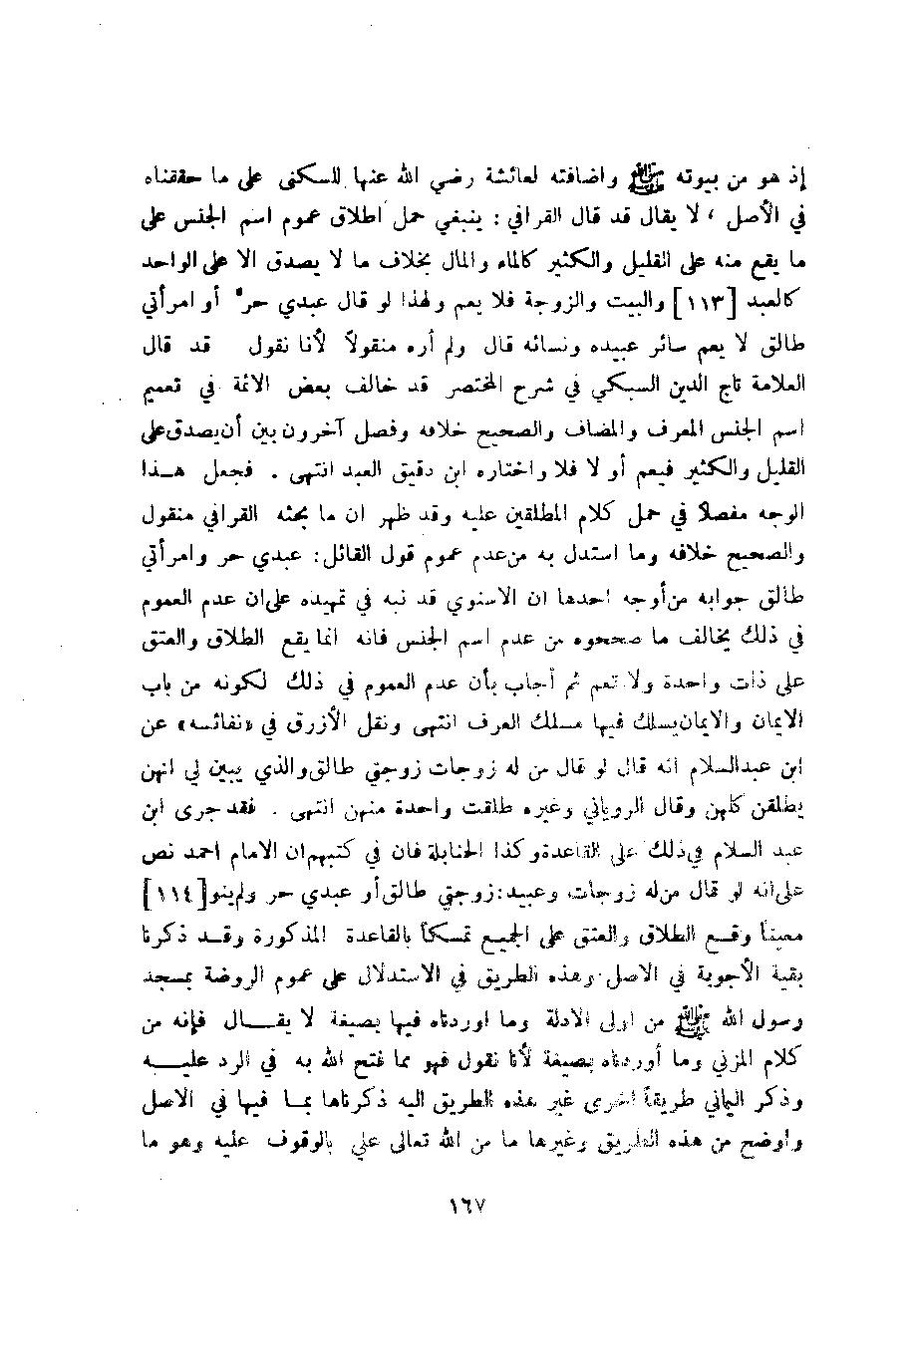 إذ هو من بيوته ﷺ واضافته لعائشة رضي الله عنها للسكنى على ما حققناه
في الأصل ، لا يقال قد قال القرافي : ينبغي حمل اطلاق عموم اسم الجنس على
ما يقع منه على القليل والكثير كالماء والمال بخلاف ما لا يصدق الا على الواحد
كالعبد [١١٣] والبيت والزوجة فلا يعم ولهذا لو قال عبدي حر أو امرأتي
طالق لا يعم سائر عبيده ونسائه قال ولم أره منقولاً لأنا نقول قد قال
العلامة تاج الدين السبكي في شرح المختصر قد خالف بعض الائمة في تعميم
اسم الجنس المعرف والمضاف والصحيح خلافه وفصل آخرون بين أن يصدق على
القليل والكثير فيعم أو لا فلا واختاره ابن دقيق العبد انتهى . فجعل هـذا
الوجه مفصلاً في حمل كلام المطلقين عليه وقد ظهر ان ما بحثه القرافي منقول
والصحيح خلافه وما استدل به من عدم عموم قول القائل : عبدي حر وامرأتي
طالق جوابه من أوجه احدها ان الاسنوي قد نبه في تمهيده على ان عدم العموم
في ذلك يخالف ما صححوه من عدم اسم الجنس فانه انما يقع الطلاق والعتق
على ذات واحدة ولا تعم ثم أجاب بأن عدم العموم في ذلك لكونه من باب
الايمان والايمان يسلك فيها مسلك العرف انتهى ونقل الأزرق في «نفائسه» عن
ابن عبدالسلام انه قال لو قال من له زوجات زوجتي طالق والذي يبين لي انهن
يطلقن كلهن وقال الروياني وغيره طلقت واحدة منهن انتهى . فقد جرى ابن
عبد السلام في ذلك على القاعدة وكذا الحنابلة فان في كتبهم ان الامام احمد نص
على انه لو قال من له زوجات وعبيد : زوجتي طالق أو عبدي حر ولم ينو [١١٤]
معيناً وقـع الطلاق والعتق على الجميع تمسكاً بالقاعدة المذكورة وقـد ذكرنا
بقية الأجوبة في الاصل وهذه الطريق في الاستدلال على عموم الروضة بمسجد
رسول الله ﷺ من اولى الادلة وما اوردناه فيها بصيغة لا يقـــال فإنه من
كلام المزني وما أوردناه بصيغة لأنا نقول فهو مما فتح الله به في الرد عليـــه
وذكر اليماني طريقاً اخرى غير هذه الطريق اليه ذكرناها بمـا فيها في الاصل
واوضح من هذه الطريق وغيرها ما من الله تعالى علي بالوقوف عليه وهو ما
١٦٧